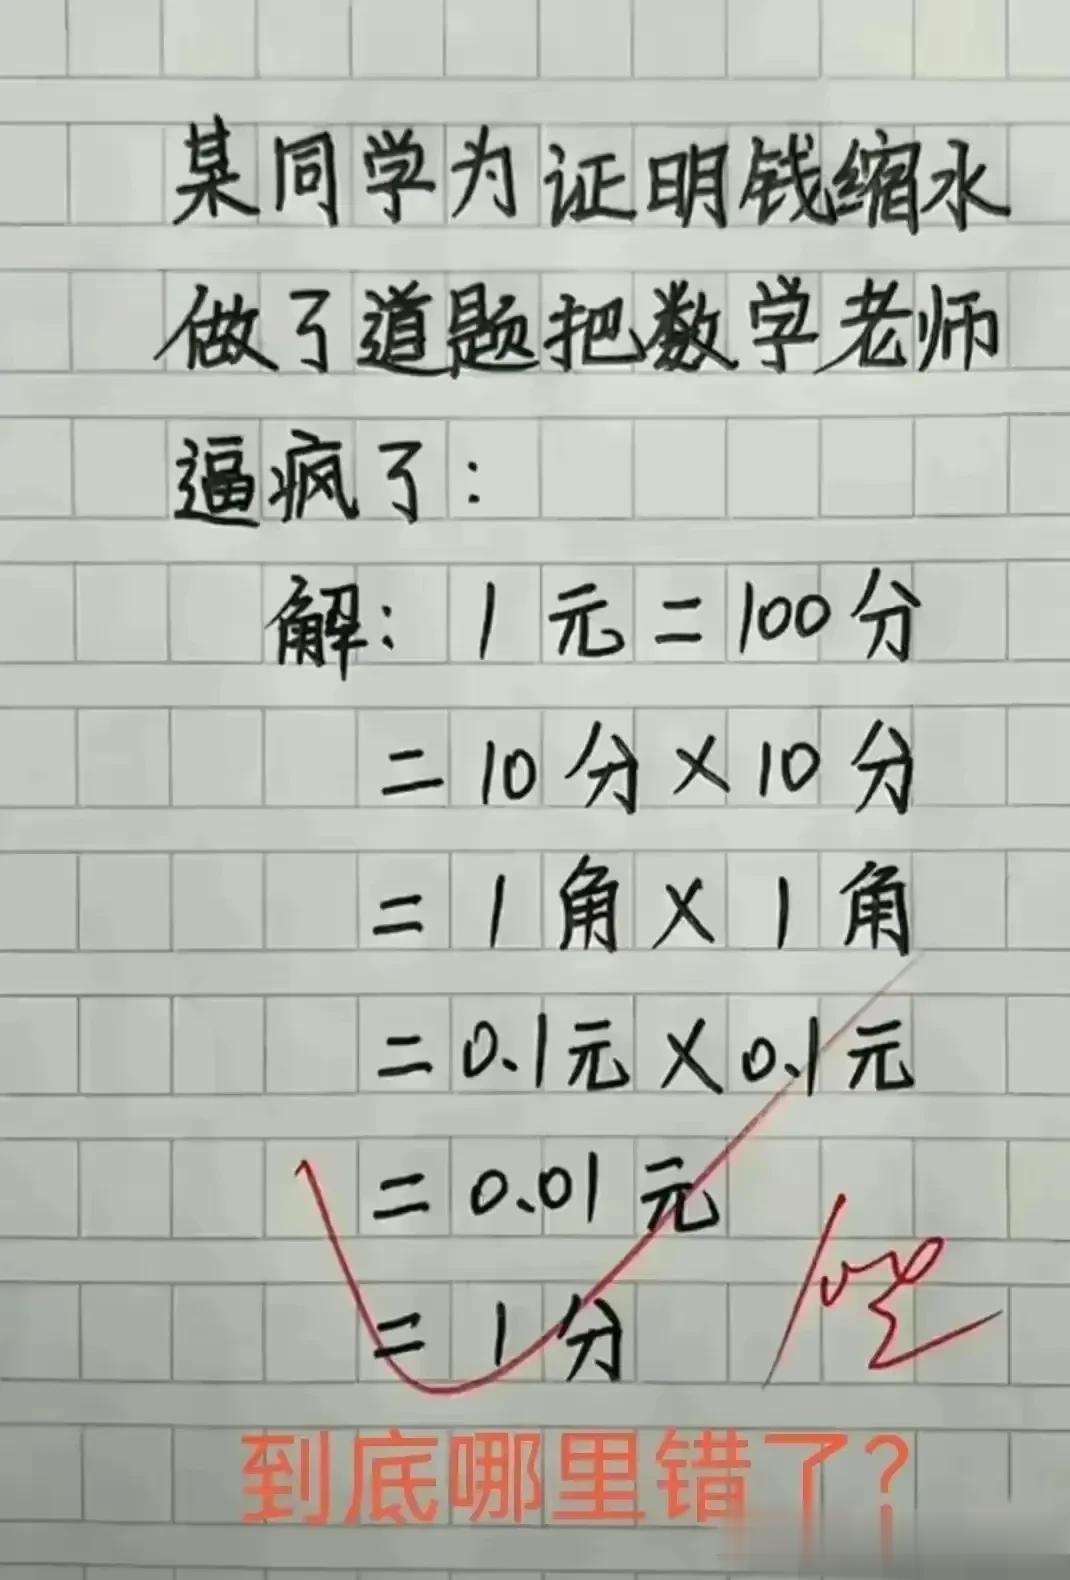 某同学为证明钱缩水
做了道题把数学老师
逼疯了：
解：1元=100分
=10分×10分
=1角×1角
=0.1元×0.1元
=0.01元
=1分
到底哪里错了？